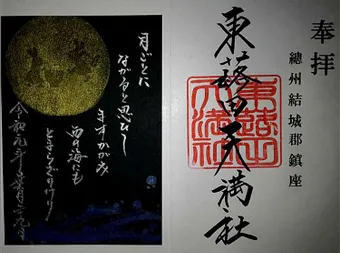 奉拝
總州結城郡鎮座
東蕗田天満社
東蕗田
天満社
月ごとに
ながると思ひし
ますかがみ
西の海にも
とまらざりけり
令和元年葉月二十九日